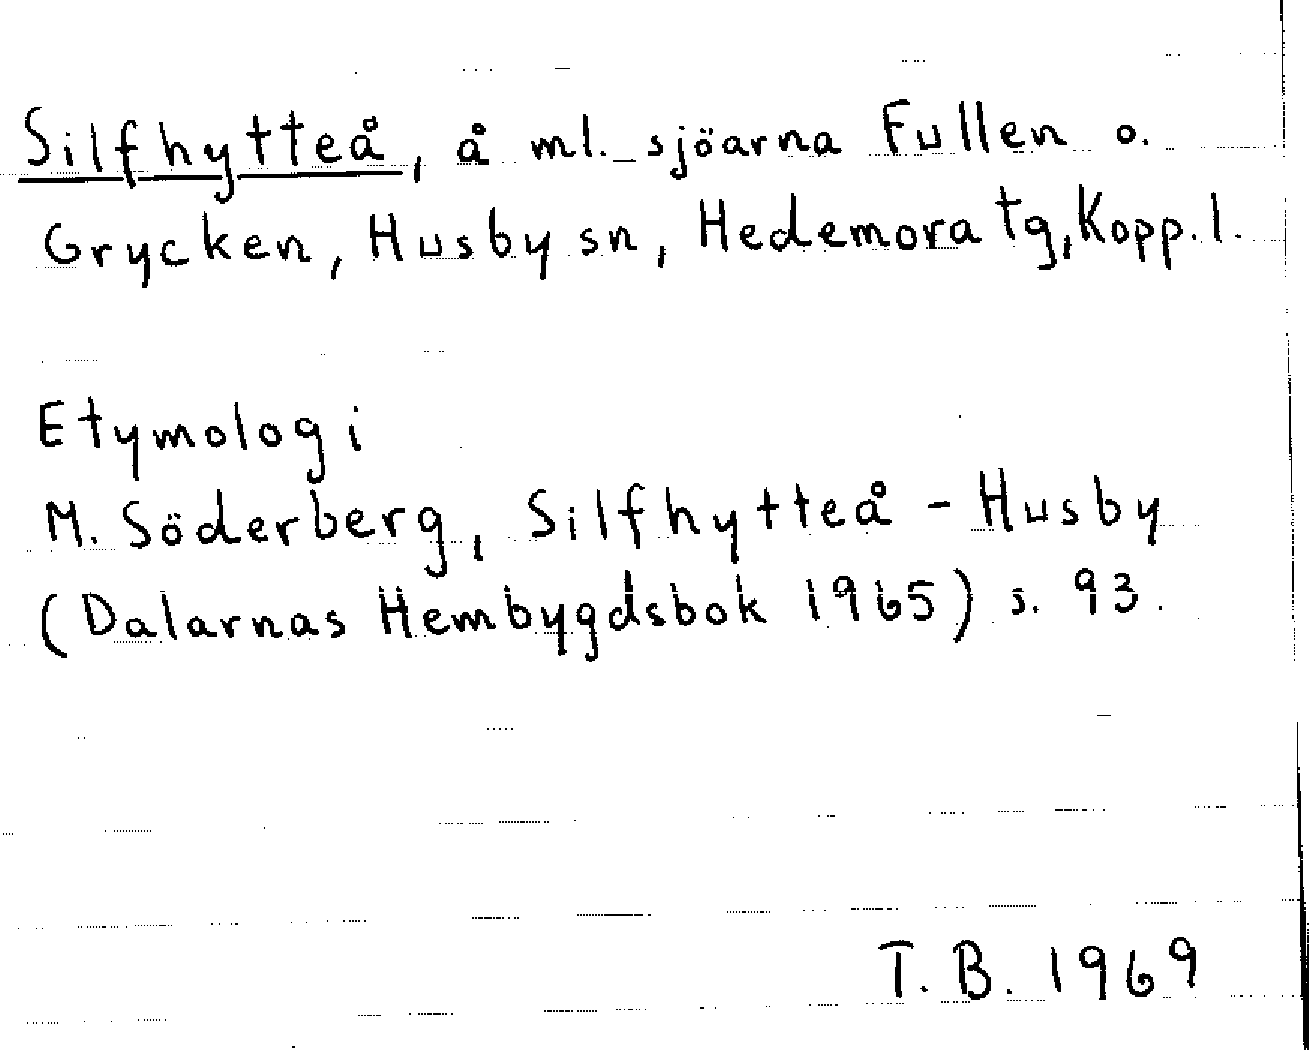 Silfhytteå, å ml. sjöarna Fullen o.
Grycken, Husby sn, Hedemora tg, Kopp. l.
Etymologi
M. Söderberg, Silfhytteå - Husby
(Dalarnas Hembygdsbok 1965) s. 93.
T. B. 1969